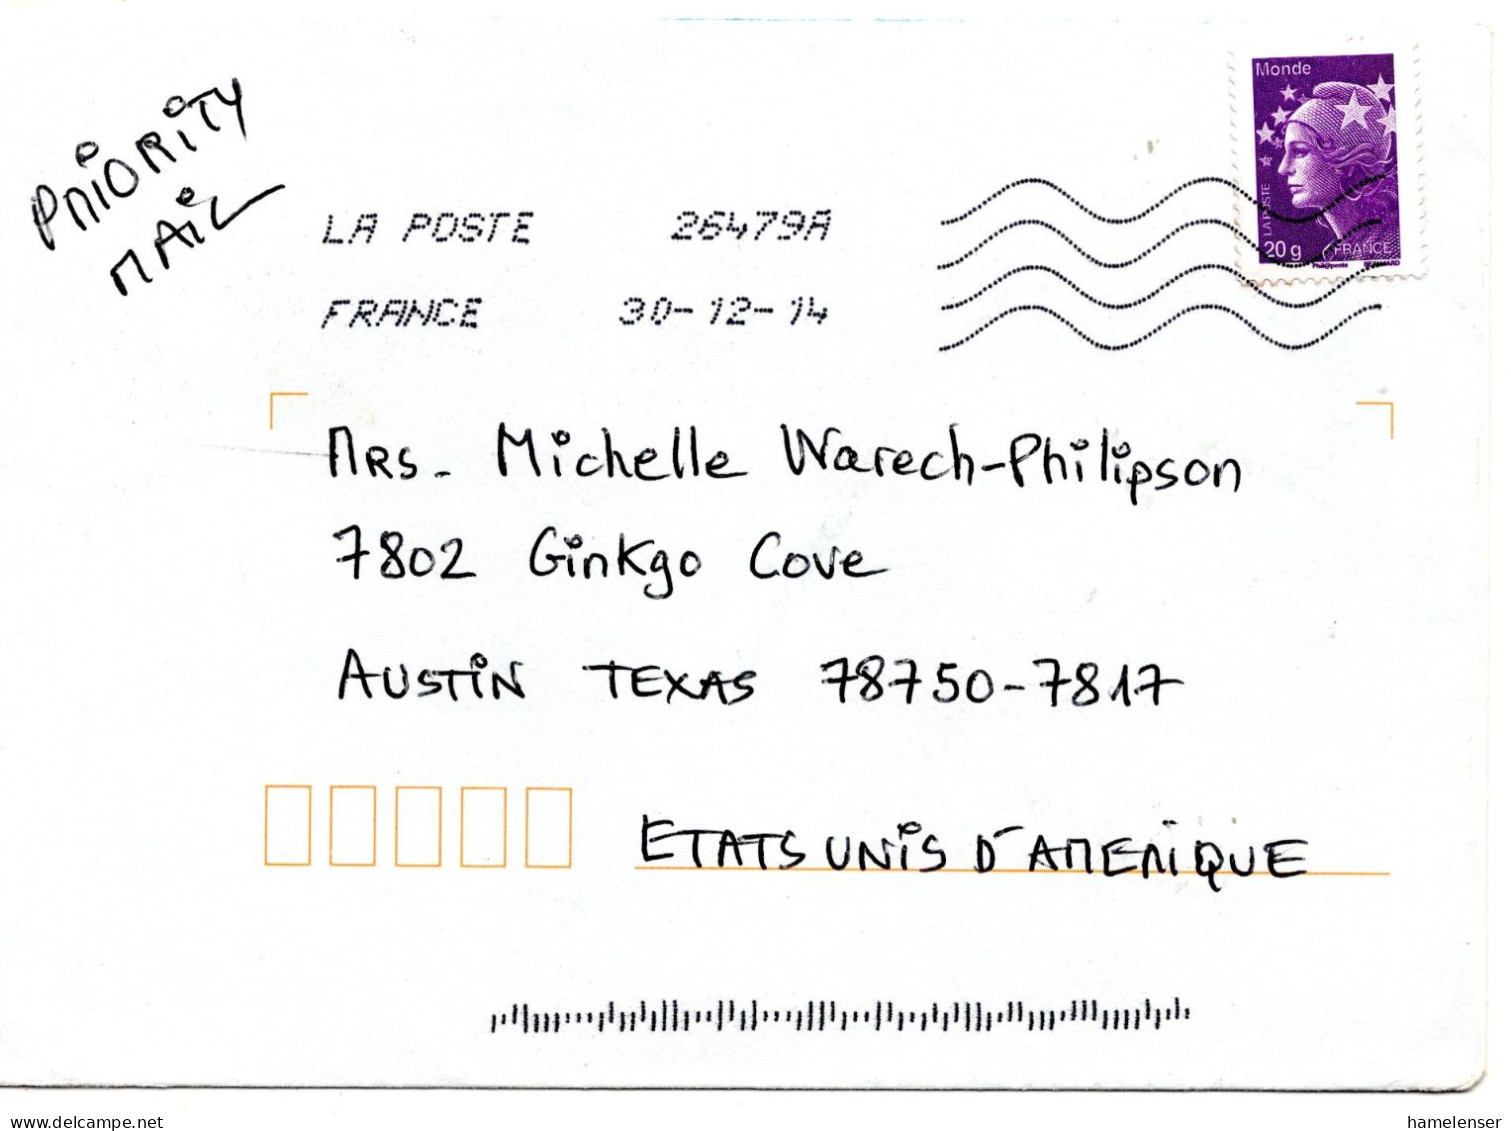 PRIORITY
MAIL
Monde
LA POSTE
20 g
FRANCE
Philaposte
BEAUJARD
LA POSTE 26479A
FRANCE 30-12-14
MRS. Michelle Warech-Philipson
7802 Ginkgo Cove
AUSTIN TEXAS 78750-7817
ETATS UNIS D'AMERIQUE
delcampe.net
hamelenser